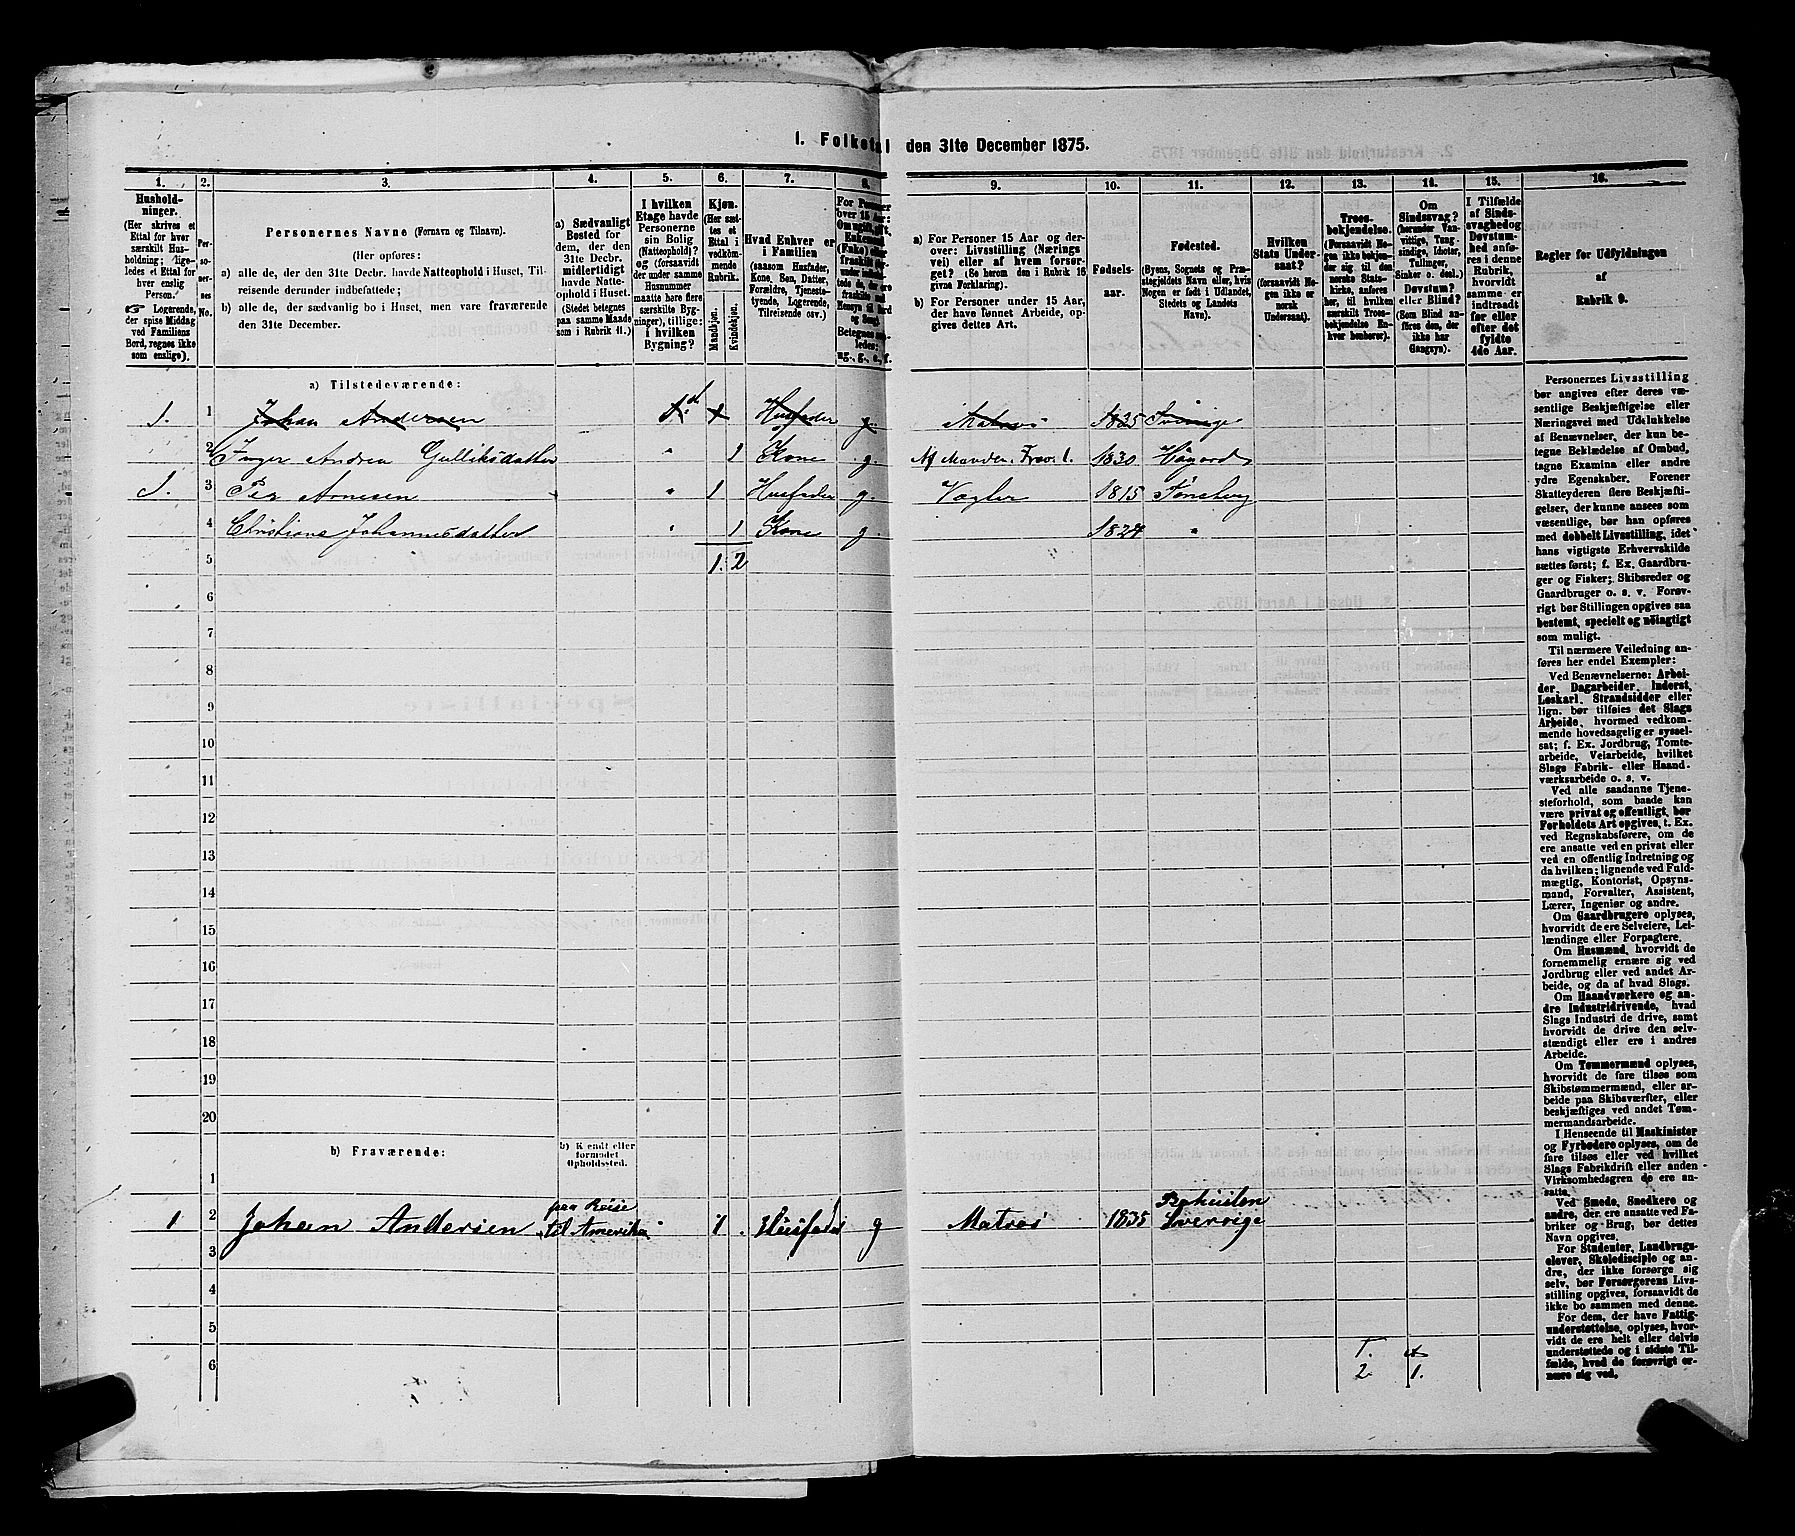 1. Folketal den 31te December 1875.
1. 2. 3. 4. 5. 6. 7. 8. 9. 10. 11. 12. 13. 14. 15. 16.
Hushold-
ninger.
(Her skrives et
Ettal for hver
særskilt Hus-
holdning; lige-
ledes et Ettal for
hver enslig
Person.)
☞ Logerende,
der spise Middag
ved Familiens
Bord, regnes ikke
som enslige).
Per-
so-
ner-
nes
No.
Personernes Navne (Fornavn og Tilnavn).
(Her opføres:
a) alle de, der den 31te Decbr. havde Natteophold i Huset, Til-
reisende derunder indbefattede;
b) alle de, der sædvanlig bo i Huset, men vare fraværende
den 31te December.
a) Sædvanligt
Bosted for
dem, der den
31te Decbr.
midlertidigt
havde Natte-
ophold i Huset.
(Stedet betegnes
paa samme Maade
som i Rubrik 11.)
I hvilken
Etage havde
Personerne
sin Bolig
(Natteophold)?
og (forsaavidt
der under samme
Husnummer
maatte høre flere
særskilte Byg-
ninger), tillige:
i hvilken
Bygning?
Kjøn.
(Her sæt-
tes et
Ettal i
vedkom-
mende
Rubrik.
Mandkjøn.
Kvindekjøn.
Hvad Enhver er
i Familien
(saasom Husfader,
Kone, Søn, Datter,
Forældre, Tjeneste-
tyende, Logerende,
Tilreisende osv.)
For Personer
over 15 Aar:
a) For Personer 15 Aar og der-
over: Livsstilling (Nærings-
vei) eller af hvem forsør-
get? (Se herom den i Rubrik 16
givne Forklaring).
b) For Personer under 15 Aar,
der have lønnet Arbeide, op-
gives dettes Art.
Fødsels-
aar.
Fødested.
(Byens, Sognets og Præ-
stegjeldets Navn eller, hvis
Nogen er født i Udlandet,
Stedets og Landets
Navn).
Hvilken
Stats Under-
saat?
(forsaavidt No-
gen ikke er
norsk
Undersaat).
Troes-
bekjendelse.
(Forsaavidt No-
gen ikke bekjen-
der sig til den
norske Stats-
kirke, anføres
her, til hvilken
særskilt Troes-
bekjendelse En-
hver henhører).
Om
Sindssvag?
(herunder Van-
vittige, Tung-
sindige, Idioter,
Tullinger,
Sinker o. desl.)
Døvstum?
eller Blind?
(Som Blind an-
føres den, der
ikke har
Gangsyn).
I Tilfælde
af Sinds-
svaghed og
Døvstum-
hed anfø-
res i denne
Rubrik,
hvorvidt
samme er
indtraadt
før eller
efter det
fyldte
4de Aar.
Regler for Udfyldningen
af
Rubrik 9.
a) Tilstedeværende:
1. 1 Johan Andersen 1. 1 Husfader g. Matros 1835 Sverrige
2 Inger Andrea Gulliksdatter " 1 Kone g. Af Manden. 1830
1. 3 Per Arnesen " 1 Husfader g. Vægter 1815 Tønsberg
4 Christiane Johannesdatter " 1 Kone g. 1824 "
5 1. 2
6
7
8
9
10
11
12
13
14
15
16
17
18
19
20
b) Fraværende:
b) Kjendt eller
formodet
Opholdssted.
1
paa Reise Bohuslen
1 2 Johan Andersen til Amerika 1. Husfader g Matros 1835 Sverige
3
4
5
6
1.
2 1.
Personernes Livsstilling
bør angives efter deres væ-
sentlige Beskjæftigelse eller
Næringsvei med Udelukkelse
af Benævnelser, der kun be-
tegne Beklædelse af Ombud,
tagne Examina eller andre
ydre Egenskaber. Forener
Skatteyderen flere Beskjæfti-
gelser, der kunne ansees som
væsentlige, bør han opføres
med dobbelt Livsstilling, idet
hans vigtigste Erhvervskilde
sættes først; f. Ex. Gaardbru-
ger og Fisker; Skibsreder og
Gaardbruger o. s. v. Forøv-
rigt bør Stillingen opgives saa
bestemt, specielt og nøiagtigt
som muligt.
Til nærmere Veiledning an-
føres her endel Exempler:
Ved Benævnelserne: Arbei-
der, Dagarbeider, Inderst,
Løskarl, Strandsidder eller
lign. bør tilføies det Slags
Arbeide, hvormed vedkom-
mende hovedsagelig er syssel-
sat; f. Ex. Jordbrug, Tomte-
arbeide, Veiarbeide, hvilket
Slags Fabrik- eller Haand-
værksarbeide o. s. v.
Ved alle saadanne Tjene-
steforhold, som baade kan
være privat og offentligt, bør
Forholdets Art opgives, t. Ex.
ved Regnskabsførere, om de
ere ansatte ved en privat eller
ved en offentlig Indretning og
da hvilken; lignende ved Fuld-
mægtig, Kontorist, Opsyns-
mand, Forvalter, Assistent,
Lærer, Ingeniør og andre.
Om Gaardbrugere oplyses,
hvorvidt de ere Selveiere, Lei-
lændinge eller Forpagtere.
Om Husmænd, hvorvidt de
fornemmelig ernære sig ved
Jordbrug eller ved andet Ar-
beide, og da af hvad Slags.
Om Haandværkere og an-
dre Industridrivende, hvad
Slags Industri de drive, samt
hvorvidt de drive den selv-
stændigt eller ere i andres
Arbeide.
Om Tømmermænd oplyses,
hvorvidt de fare tilsøs som
Skibstømmermænd, eller ar-
beide paa Skibsværfter, eller
beskjæftiges ved andet Tøm-
mermandsarbeide.
I Henseende til Maskinister
og Fyrbødere oplyses, om de
fare tilsøs eller ved hvilket
Slags Fabrikdrift eller anden
Virksomhedsgren de ere an-
satte.
Ved Smede, Snedkere og
andre, der ere ansatte ved Fa-
briker og Brug, bør dettes
Navn opgives.
For Studenter, Landbrugs-
elever, Skoledisciple og an-
dre, der ikke forsørge sig
selv, bør Forsørgerens Livs-
stilling opgives, forsaavidt de
ikke bo sammen med denne.
For dem, der have Fattig-
understøttelse, oplyses, hvor-
vidt de ere helt eller delvis
understøttede og i sidste Til-
fælde, hvad de forøvrigt er-
nære sig ved.